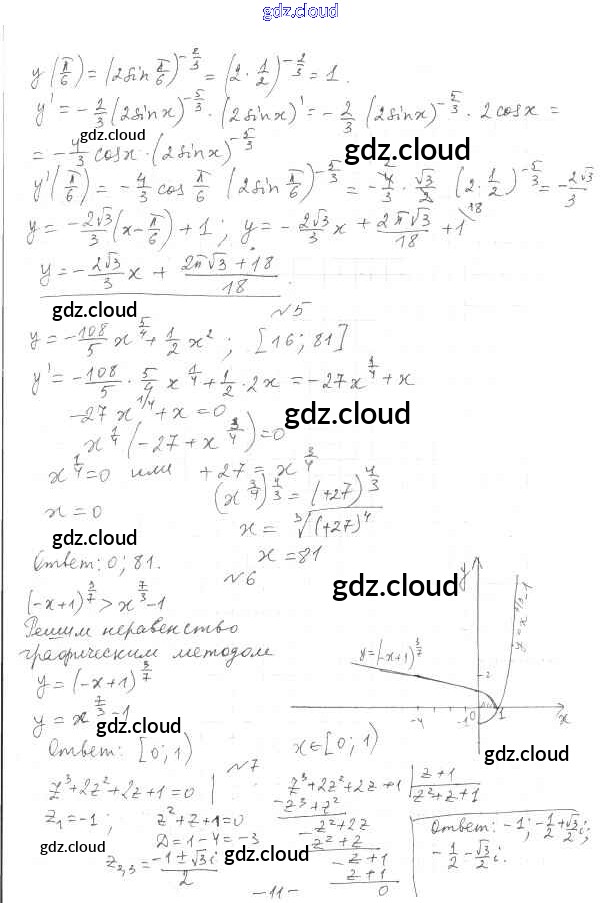 gdz.cloud
y(π/6) = (2sin π/6)^(-2/3) = (2·1/2)^(-2/3) = 1.
y' = -2/3 (2sinx)^(-5/3) · (2sinx)' = -2/3 (2sinx)^(-5/3) · 2cosx =
= -4/3 cosx · (2sinx)^(-5/3)
gdz.cloud
gdz.cloud
y'(π/6) = -4/3 cos π/6 (2sin π/6)^(-5/3) = -4/3 · √3/2 (2·1/2)^(-5/3) = -2√3/3
y = -2√3/3 (x - π/6) + 1; y = -2√3/3 x + 2π√3/18 + 1
y = -2√3/3 x + (2π√3 + 18)/18.
gdz.cloud
№5
y = -108/5 x^(5/4) + 1/2 x²; [16; 81]
y' = -108/5 · 5/4 x^(1/4) + 1/2 · 2x = -27x^(1/4) + x
-27x^(1/4) + x = 0
gdz.cloud
x^(1/4) (-27 + x^(3/4)) = 0
x^(1/4) = 0 или +27 = x^(3/4)
gdz.cloud
(x^(3/4))^(4/3) = (+27)^(4/3)
x = 0
x = ³√((+27)⁴)
gdz.cloud
x = 81
Ответ: 0; 81.
№6
gdz.cloud
(-x+1)^(3/7) > x^(7/3) - 1
Решим неравенство
графическим методом
y = (-x+1)^(3/7)
y = x^(7/3) - 1
gdz.cloud
y
y = x^(7/3) - 1
y = (-x+1)^(3/7)
2
-4
-1
0
1
x
Ответ: [0; 1)
x ∈ [0; 1)
gdz.cloud
№7
z³ + 2z² + 2z + 1 = 0
z₁ = -1; z² + z + 1 = 0
D = 1 - 4 = -3
gdz.cloud
z₂,₃ = (-1 ± √3 i)/2
gdz.cloud
z³ + 2z² + 2z + 1 | z + 1
z³ + z² | z² + z + 1
z² + 2z
z² + z
z + 1
z + 1
0
Ответ: -1; -1/2 + √3/2 i;
-1/2 - √3/2 i.
gdz.cloud
-11-